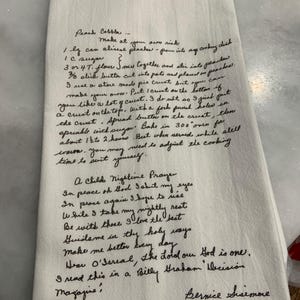 Peach Cobbler -
Make at your own risk
1 - lg can sliced peaches - pour into 9x9 baking dish
1 C. sugar
3 or 4 T. flour } mix together and stir into peaches
¾ stick butter cut into pats and placed on peaches
I use a store made pie crust but you can
make your own. Put 1 crust on the bottom if
you like a lot of crust. I do not so I just put
a crust on the top. With a fork punch holes in
the crust. Spread butter on the crust, then
sprinkle with sugar. Bake in 300° oven for
about 1½ to 2 hours. Best when served while still
warm. You may need to adjust the cooking
time to suit yourself.
A Childs Nighttime Prayer
In peace oh God I shut my eyes
In peace again I hope to rise
While I take my nightly rest
Be with those I love the best
Guide me in thy holy ways
Make me better every day
Hear O'Isreal, the Lord our God is one.
I read this in a Billy Graham Decision
Magazine!
Bernice